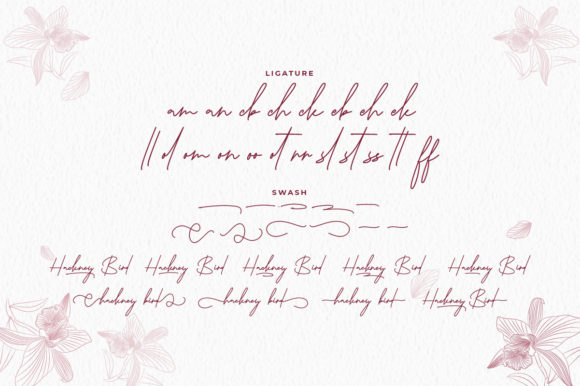 LIGATURE
am an cb ch ck eb eh ek
ll ol om on oo ot rr sl st ss tt ff
SWASH
Hackney Bird Hackney Bird Hackney Bird Hackney Bird Hackney Bird
hackney bird hackney bird hackney bird Hackney Bird